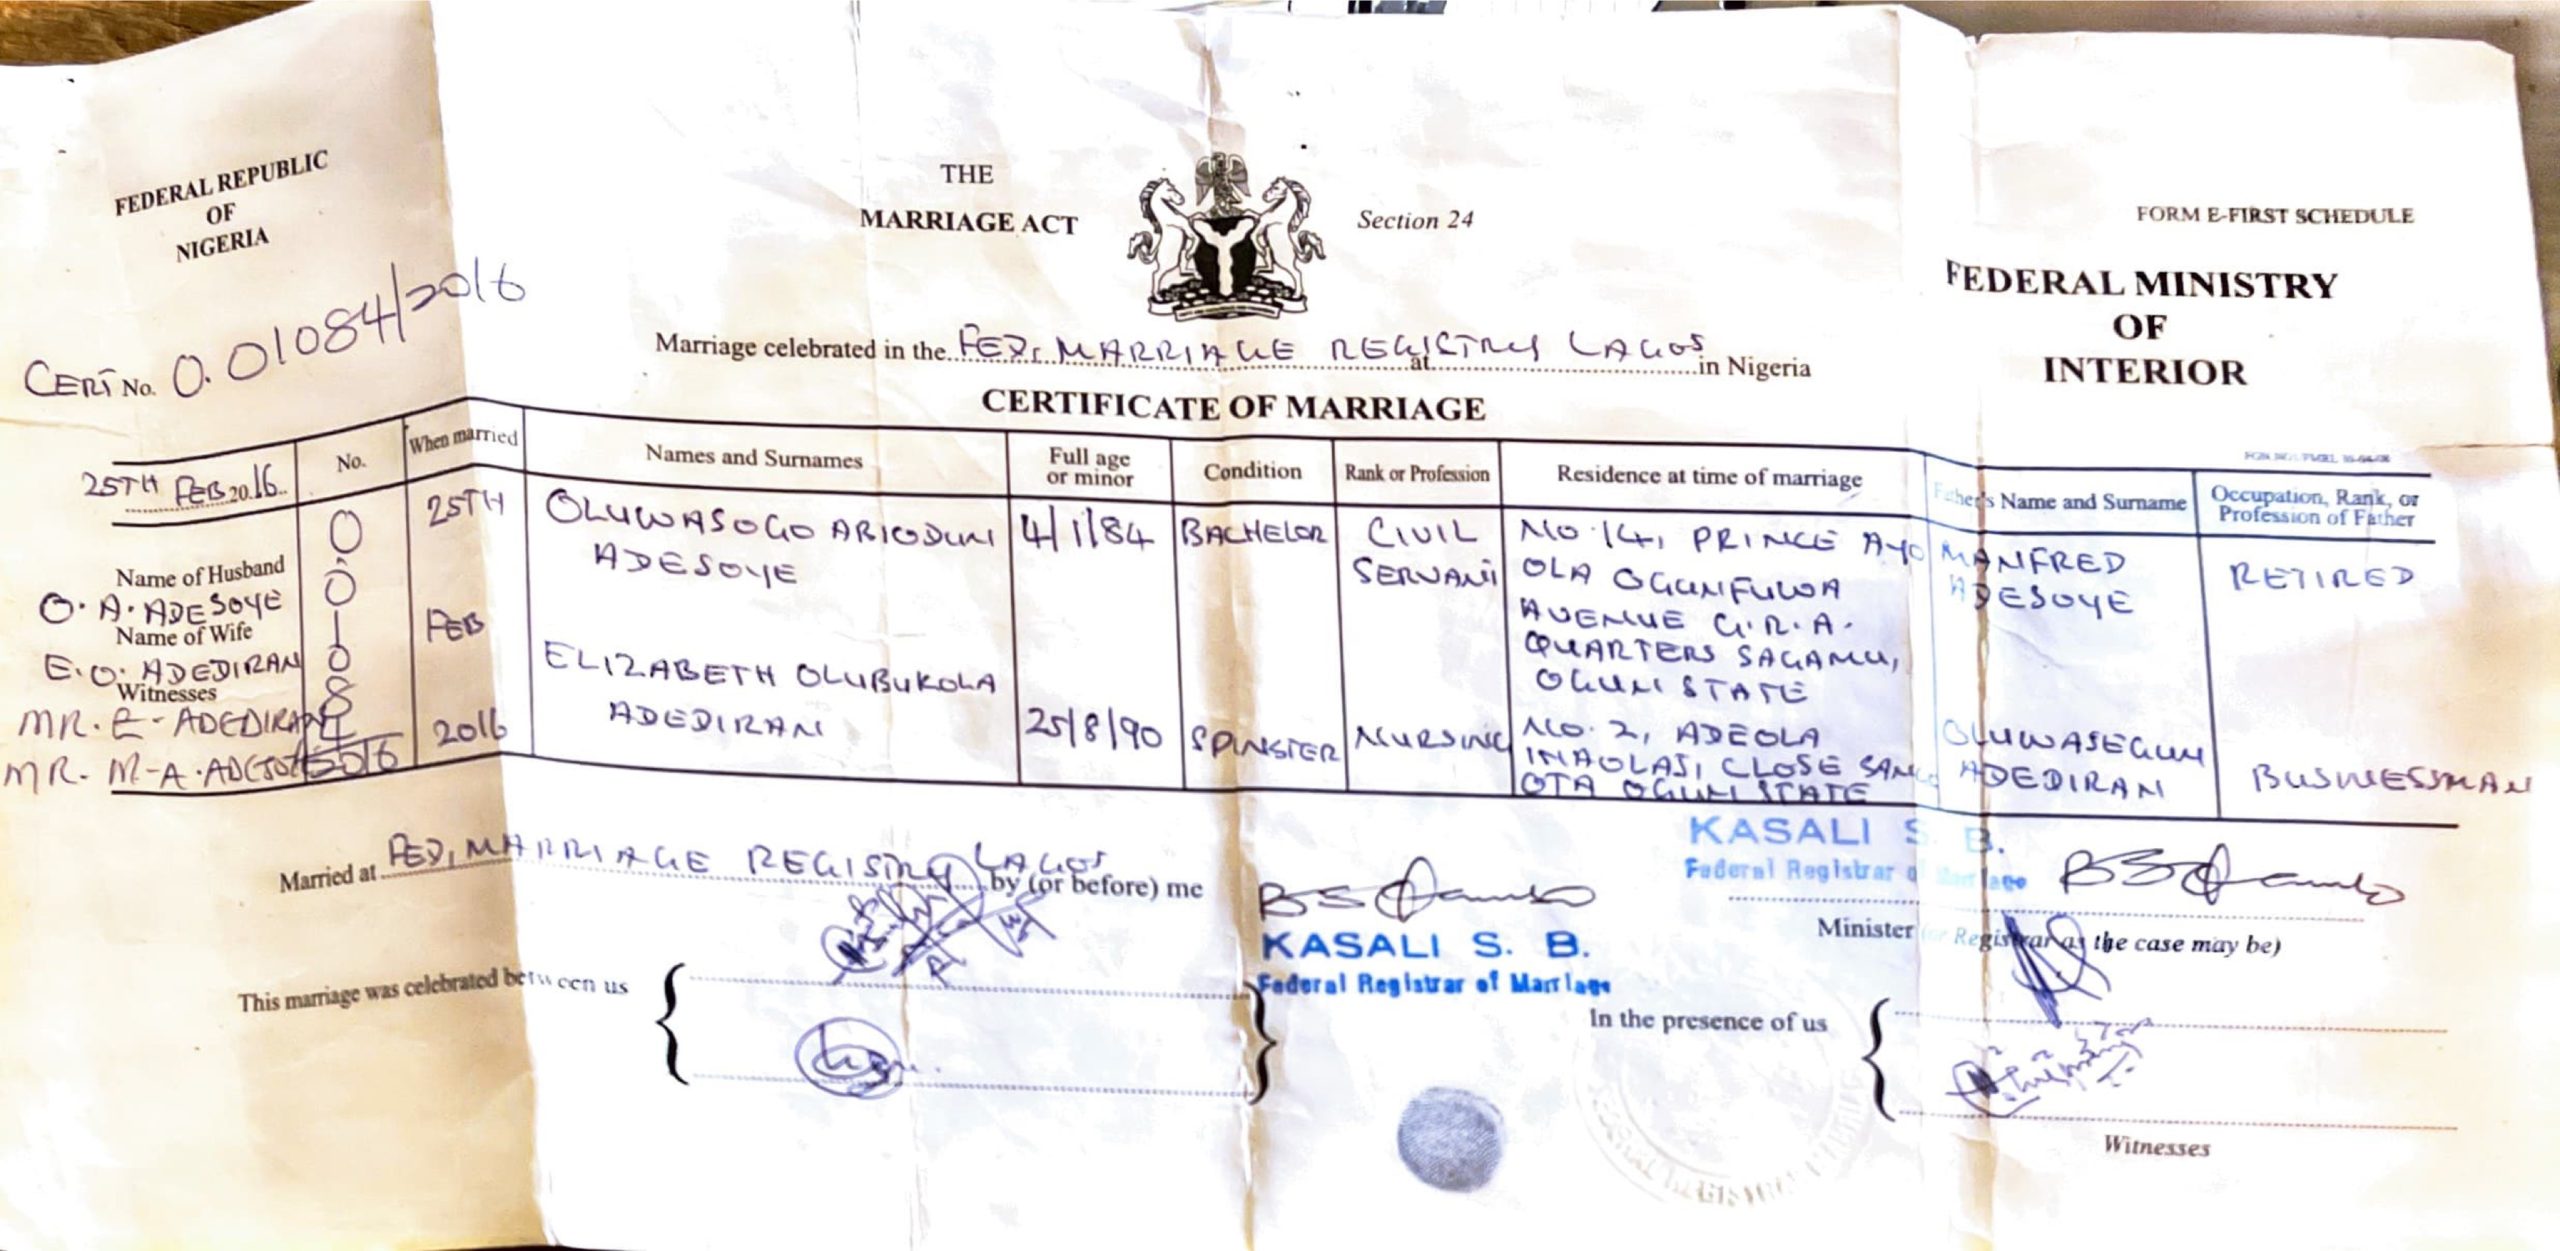 FEDERAL REPUBLIC
OF
NIGERIA
CERT No. 0.01084/2016
THE
MARRIAGE ACT
Section 24
FORM E-FIRST SCHEDULE
FEDERAL MINISTRY
OF
INTERIOR
Marriage celebrated in the FED. MARRIAGE REGISTRY LAGOS at in Nigeria
CERTIFICATE OF MARRIAGE
25TH FEB 2016
Name of Husband
O. A. ADESOYE
Name of Wife
E. O. ADEDIRAN
Witnesses
MR. E. ADEDIRAN
MR. M. A.
No.
0.01084
2016
When married
25TH
FEB
2016
Names and Surnames
OLUWASOGO ABIODUN
ADESOYE
ELIZABETH OLUBUKOLA
ADEDIRAN
Full age
or minor
4/1/84
25/8/90
Condition
BACHELOR
SPINSTER
Rank or Profession
CIVIL
SERVANT
NURSING
Residence at time of marriage
NO. 14, PRINCE AYO
OLA OGUNFUWA
AVENUE G.R.A.
QUARTERS SAGAMU,
OGUN STATE
NO. 2, ADEOLA
CLOSE
OTA OGUN STATE
Father's Name and Surname
MANFRED
ADESOYE
OLUWASEGUN
ADEDIRAN
Occupation, Rank, or
Profession of Father
RETIRED
BUSINESSMAN
Married at FED. MARRIAGE REGISTRY LAGOS by (or before) me
KASALI S. B.
Federal Registrar of Marriage
KASALI S. B.
Federal Registrar of Marriage
Minister (or Registrar as the case may be)
This marriage was celebrated between us
In the presence of us
Witnesses